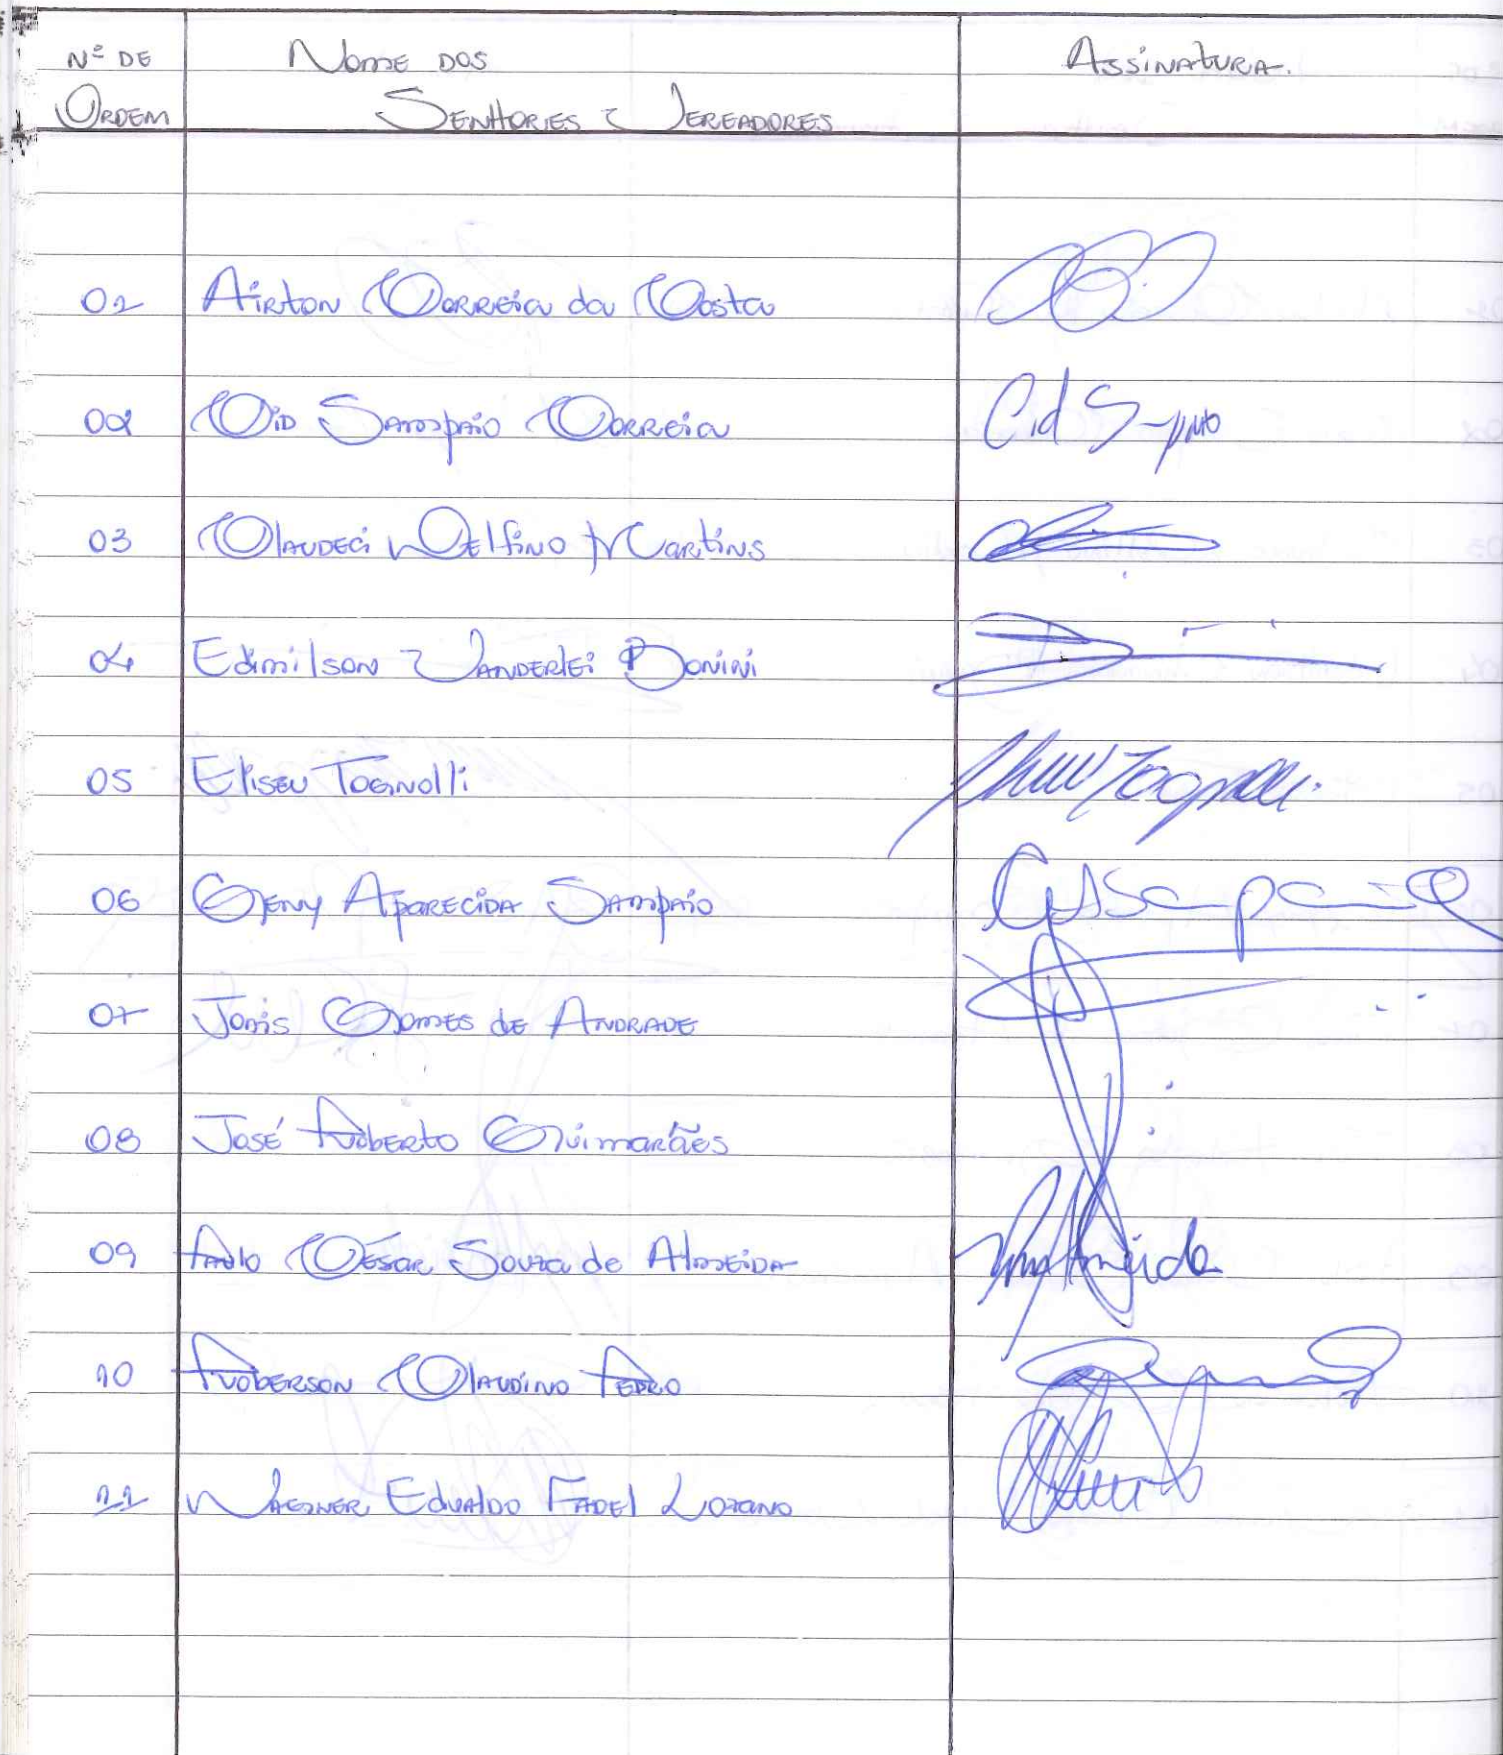 Nº DE Nome DOS Assinatura.
Ordem Senhores Vereadores
01 Airton Correia da Costa
02 Cid Sampaio Correia Cid S
03 Claudeci Delfino Martins
04 Edimilson Vanderlei Bonini
05 Eliseu Tognolli Eliseu Tognolli
06 Geny Aparecida Sampaio GASampaio
07 Jonis Gomes de Andrade
08 José Roberto Guimarães
09 Paulo César Souza de Almeida Almeida
10 Roberson Claudino Pedro
11 Wagner Edualdo Fadel Lozano